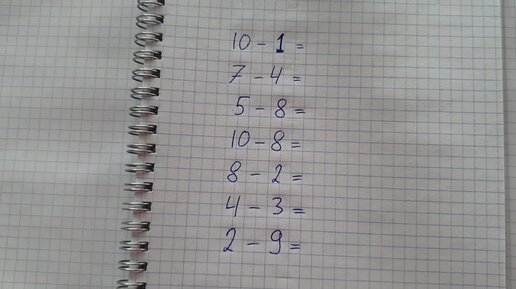 10 - 1 =
7 - 4 =
5 - 8 =
10 - 8 =
8 - 2 =
4 - 3 =
2 - 9 =